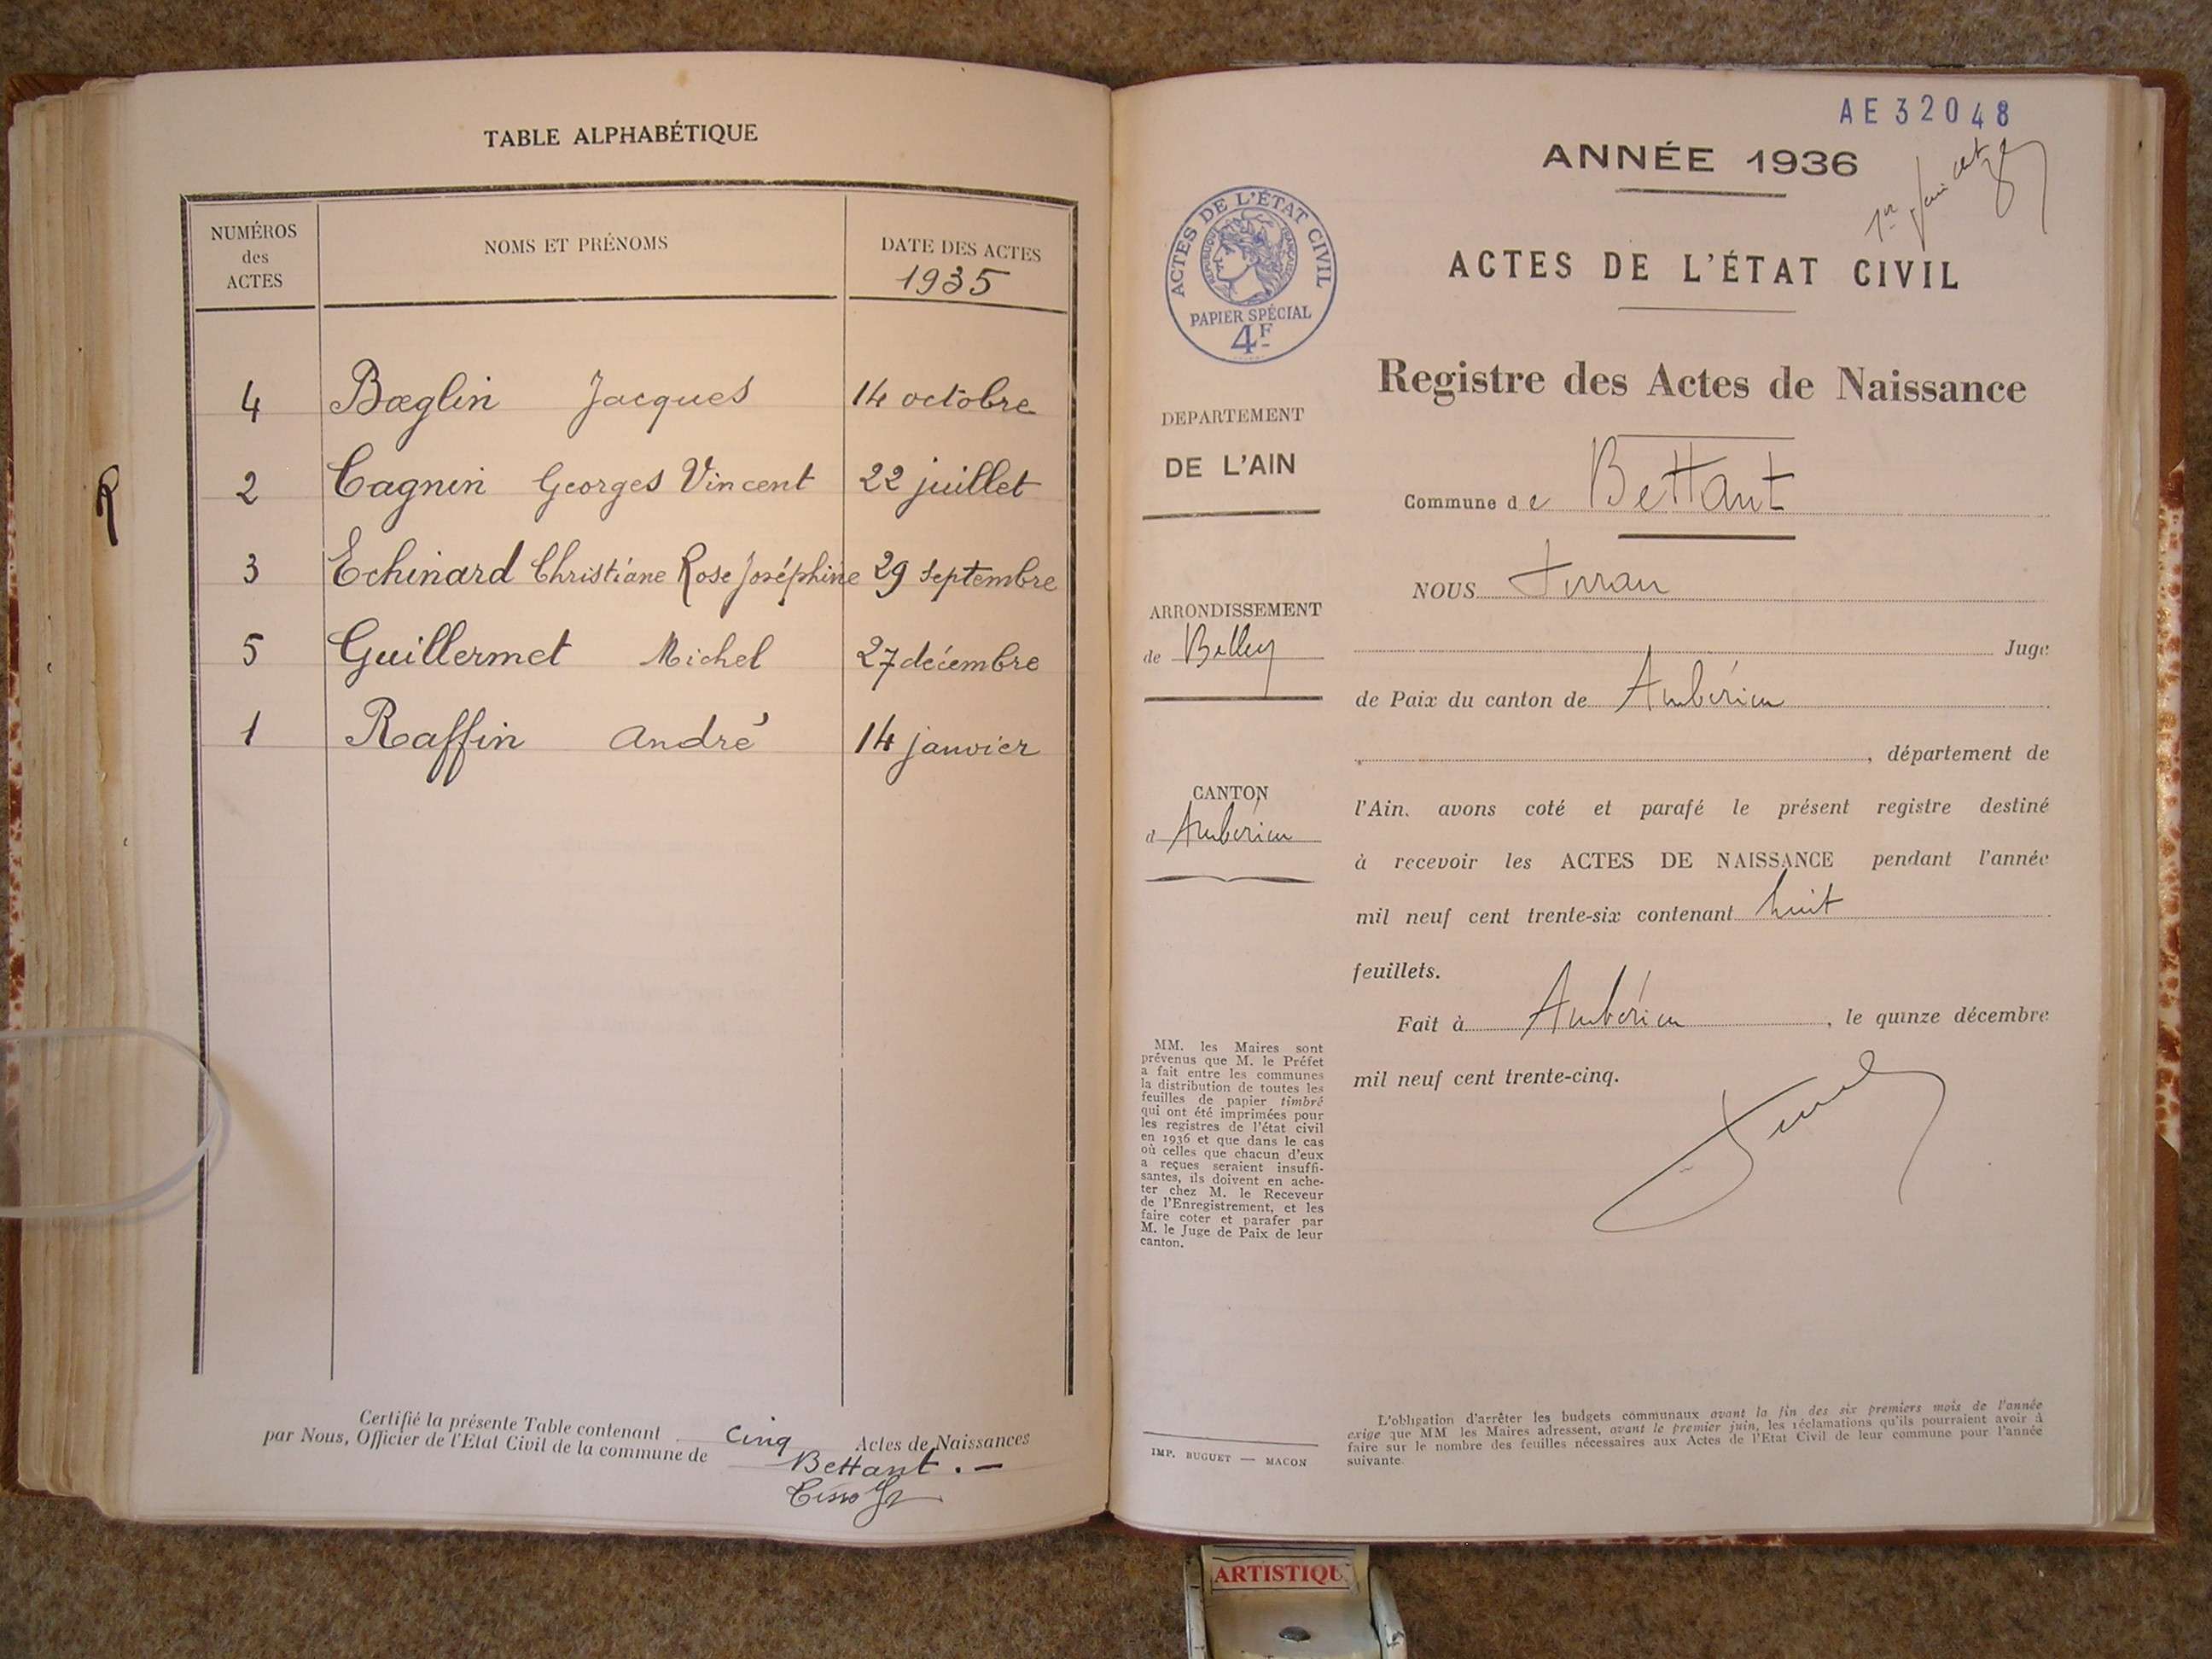 TABLE ALPHABÉTIQUE
NUMÉROS
des
ACTES
NOMS ET PRÉNOMS
DATE DES ACTES
1935
4 Bœglin Jacques 14 octobre
2 Cagnin Georges Vincent 22 juillet
3 Echinard Christiane Rose Joséphine 29 septembre
5 Guillermet Michel 27 décembre
1 Raffin André 14 janvier
R
Certifié la présente Table contenant cinq Actes de Naissances
par Nous, Officier de l'Etat Civil de la commune de Bettant . —
AE 32048
ANNÉE 1936
ACTES DE L'ÉTAT CIVIL
RÉPUBLIQUE FRANÇAISE
PAPIER SPÉCIAL
4F
ACTES DE L'ÉTAT CIVIL
Registre des Actes de Naissance
DEPARTEMENT
DE L'AIN
Commune de Bettant
ARRONDISSEMENT
de Belley
CANTON
d Ambérieu
NOUS
Juge
de Paix du canton de Ambérieu
, département de
l'Ain. avons coté et parafé le présent registre destiné
à recevoir les ACTES DE NAISSANCE pendant l'année
mil neuf cent trente-six contenant huit
feuillets.
Fait à Ambérieu, le quinze décembre
mil neuf cent trente-cinq.
MM. les Maires sont
prévenus que M. le Préfet
a fait entre les communes
la distribution de toutes les
feuilles de papier timbré
qui ont été imprimées pour
les registres de l'état civil
en 1936 et que dans le cas
où celles que chacun d'eux
a reçues seraient insuffi-
santes, ils doivent en ache-
ter chez M. le Receveur
de l'Enregistrement, et les
faire coter et parafer par
M. le Juge de Paix de leur
canton.
IMP. BUGUET — MACON
L'obligation d'arrêter les budgets communaux avant la fin des six premiers mois de l'année
exige que MM les Maires adressent, avant le premier juin, les réclamations qu'ils pourraient avoir à
faire sur le nombre des feuilles nécessaires aux Actes de l'Etat Civil de leur commune pour l'année
suivante.
ARTISTIQU